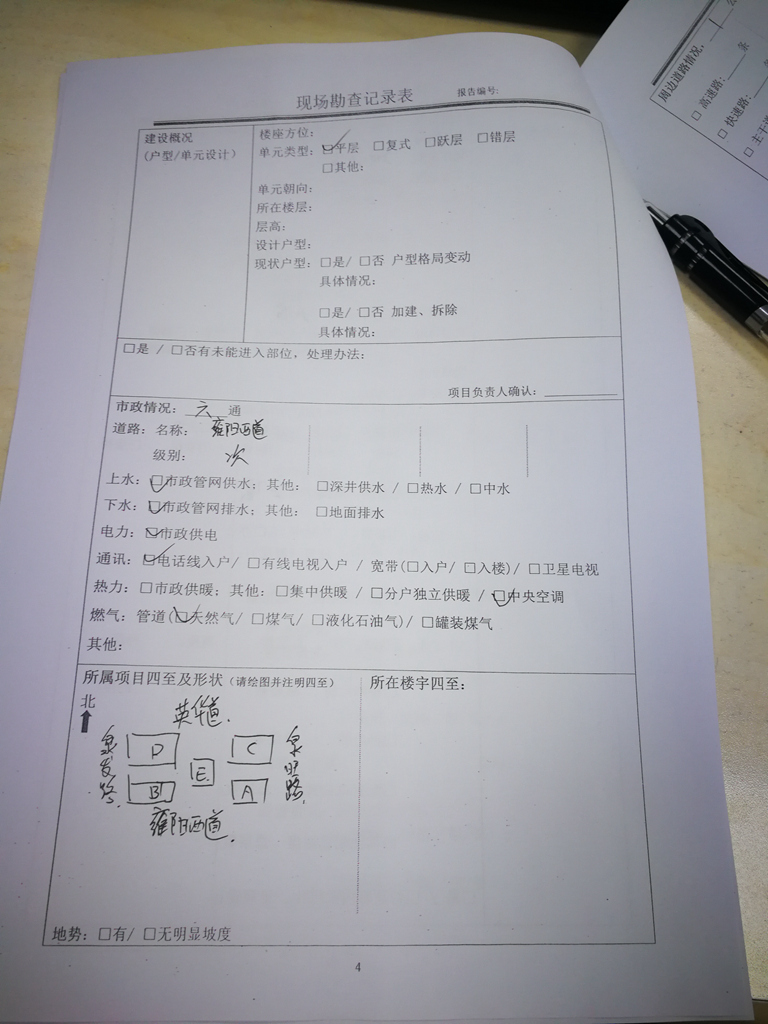 现场勘查记录表
报告编号:
建设概况
(户型/单元设计)
楼座方位:
单元类型: ☑平层 □复式 □跃层 □错层
□其他:
单元朝向:
所在楼层:
层高:
设计户型:
现状户型: □是/ □否 户型格局变动
具体情况:
□是/ □否 加建、拆除
具体情况:
□是 / □否有未能进入部位, 处理办法:
项目负责人确认:
市政情况: 六 通
道路: 名称: 雍阳西道
级别: 次
上水: ☑市政管网供水; 其他: □深井供水 / □热水 / □中水
下水: ☑市政管网排水; 其他: □地面排水
电力: ☑市政供电
通讯: ☑电话线入户/ □有线电视入户 / 宽带(□入户/ □入楼)/ □卫星电视
热力: □市政供暖; 其他: □集中供暖 / □分户独立供暖 / ☑中央空调
燃气: 管道(☑天然气/ □煤气/ □液化石油气)/ □罐装煤气
其他:
所属项目四至及形状 (请绘图并注明四至)
北
英华道.
泉发路.
D
C
E
B
A
泉旺路.
雍阳西道.
所在楼宇四至:
地势: □有/ □无明显坡度
4
周边道路情况,
□ 高速路: 条
□ 快速路:
□ 主干道